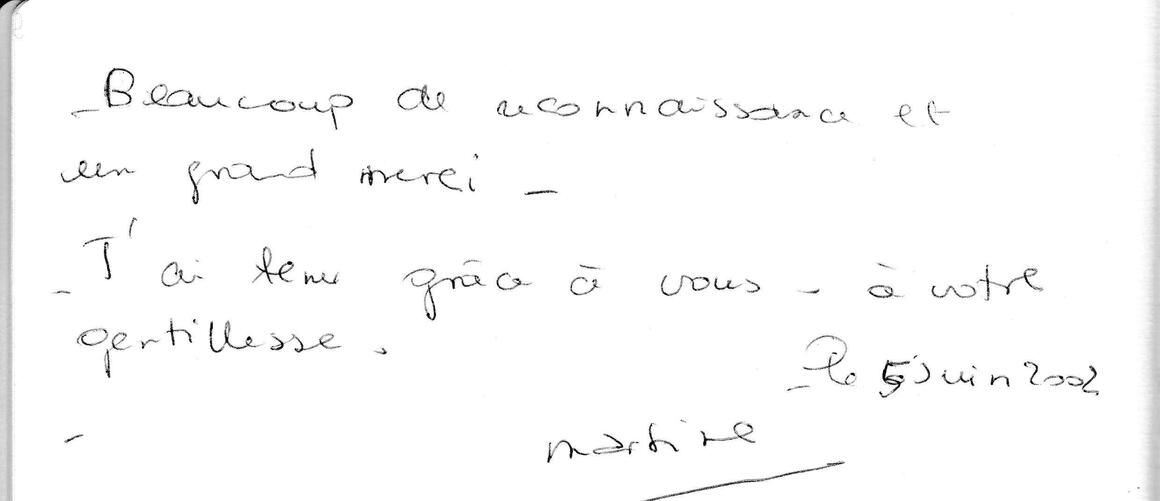 - Beaucoup de reconnaissance et
un grand merci -
- J'ai tenu grâce à vous - à votre
gentillesse.
- Le 5 Juin 2002
- martine